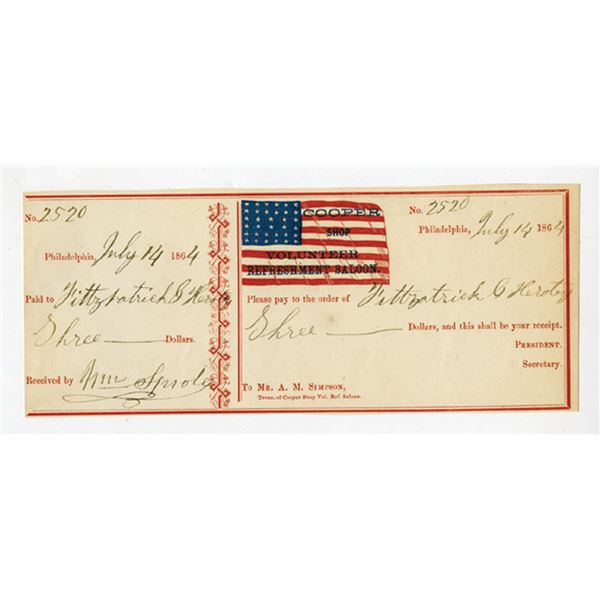 No. 2520
Philadelphia, July 14 1864
Paid to Fittzpatrick &
Three Dollars.
Received by Wm
COOPER
SHOP
VOLUNTEER
REFRESHMENT SALOON.
No. 2520
Philadelphia, July 14 1864
Please pay to the order of Fittzpatrick &
Three Dollars, and this shall be your receipt.
PRESIDENT.
Secretary.
To Mr. A. M. Simpson,
Treas. of Cooper Shop Vol. Ref. Saloon.